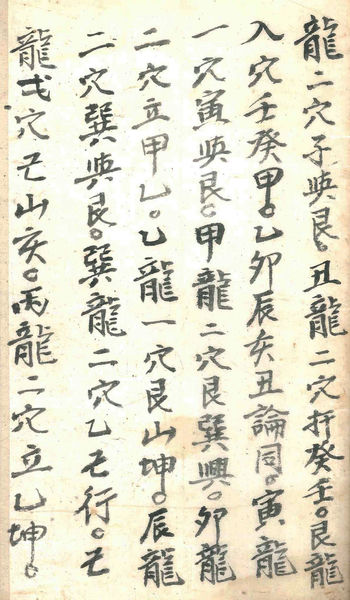 龍二穴子與艮。丑龍二穴扦癸壬。艮龍
入穴壬癸甲。乙卯辰亥丑論同。寅龍
一穴寅與艮。甲龍二穴艮巽興。卯龍
二穴立甲乙。乙龍一穴艮山坤。辰龍
二穴巽與艮。巽龍二穴乙行。
龍穴山亥。丙龍二穴立乙坤。